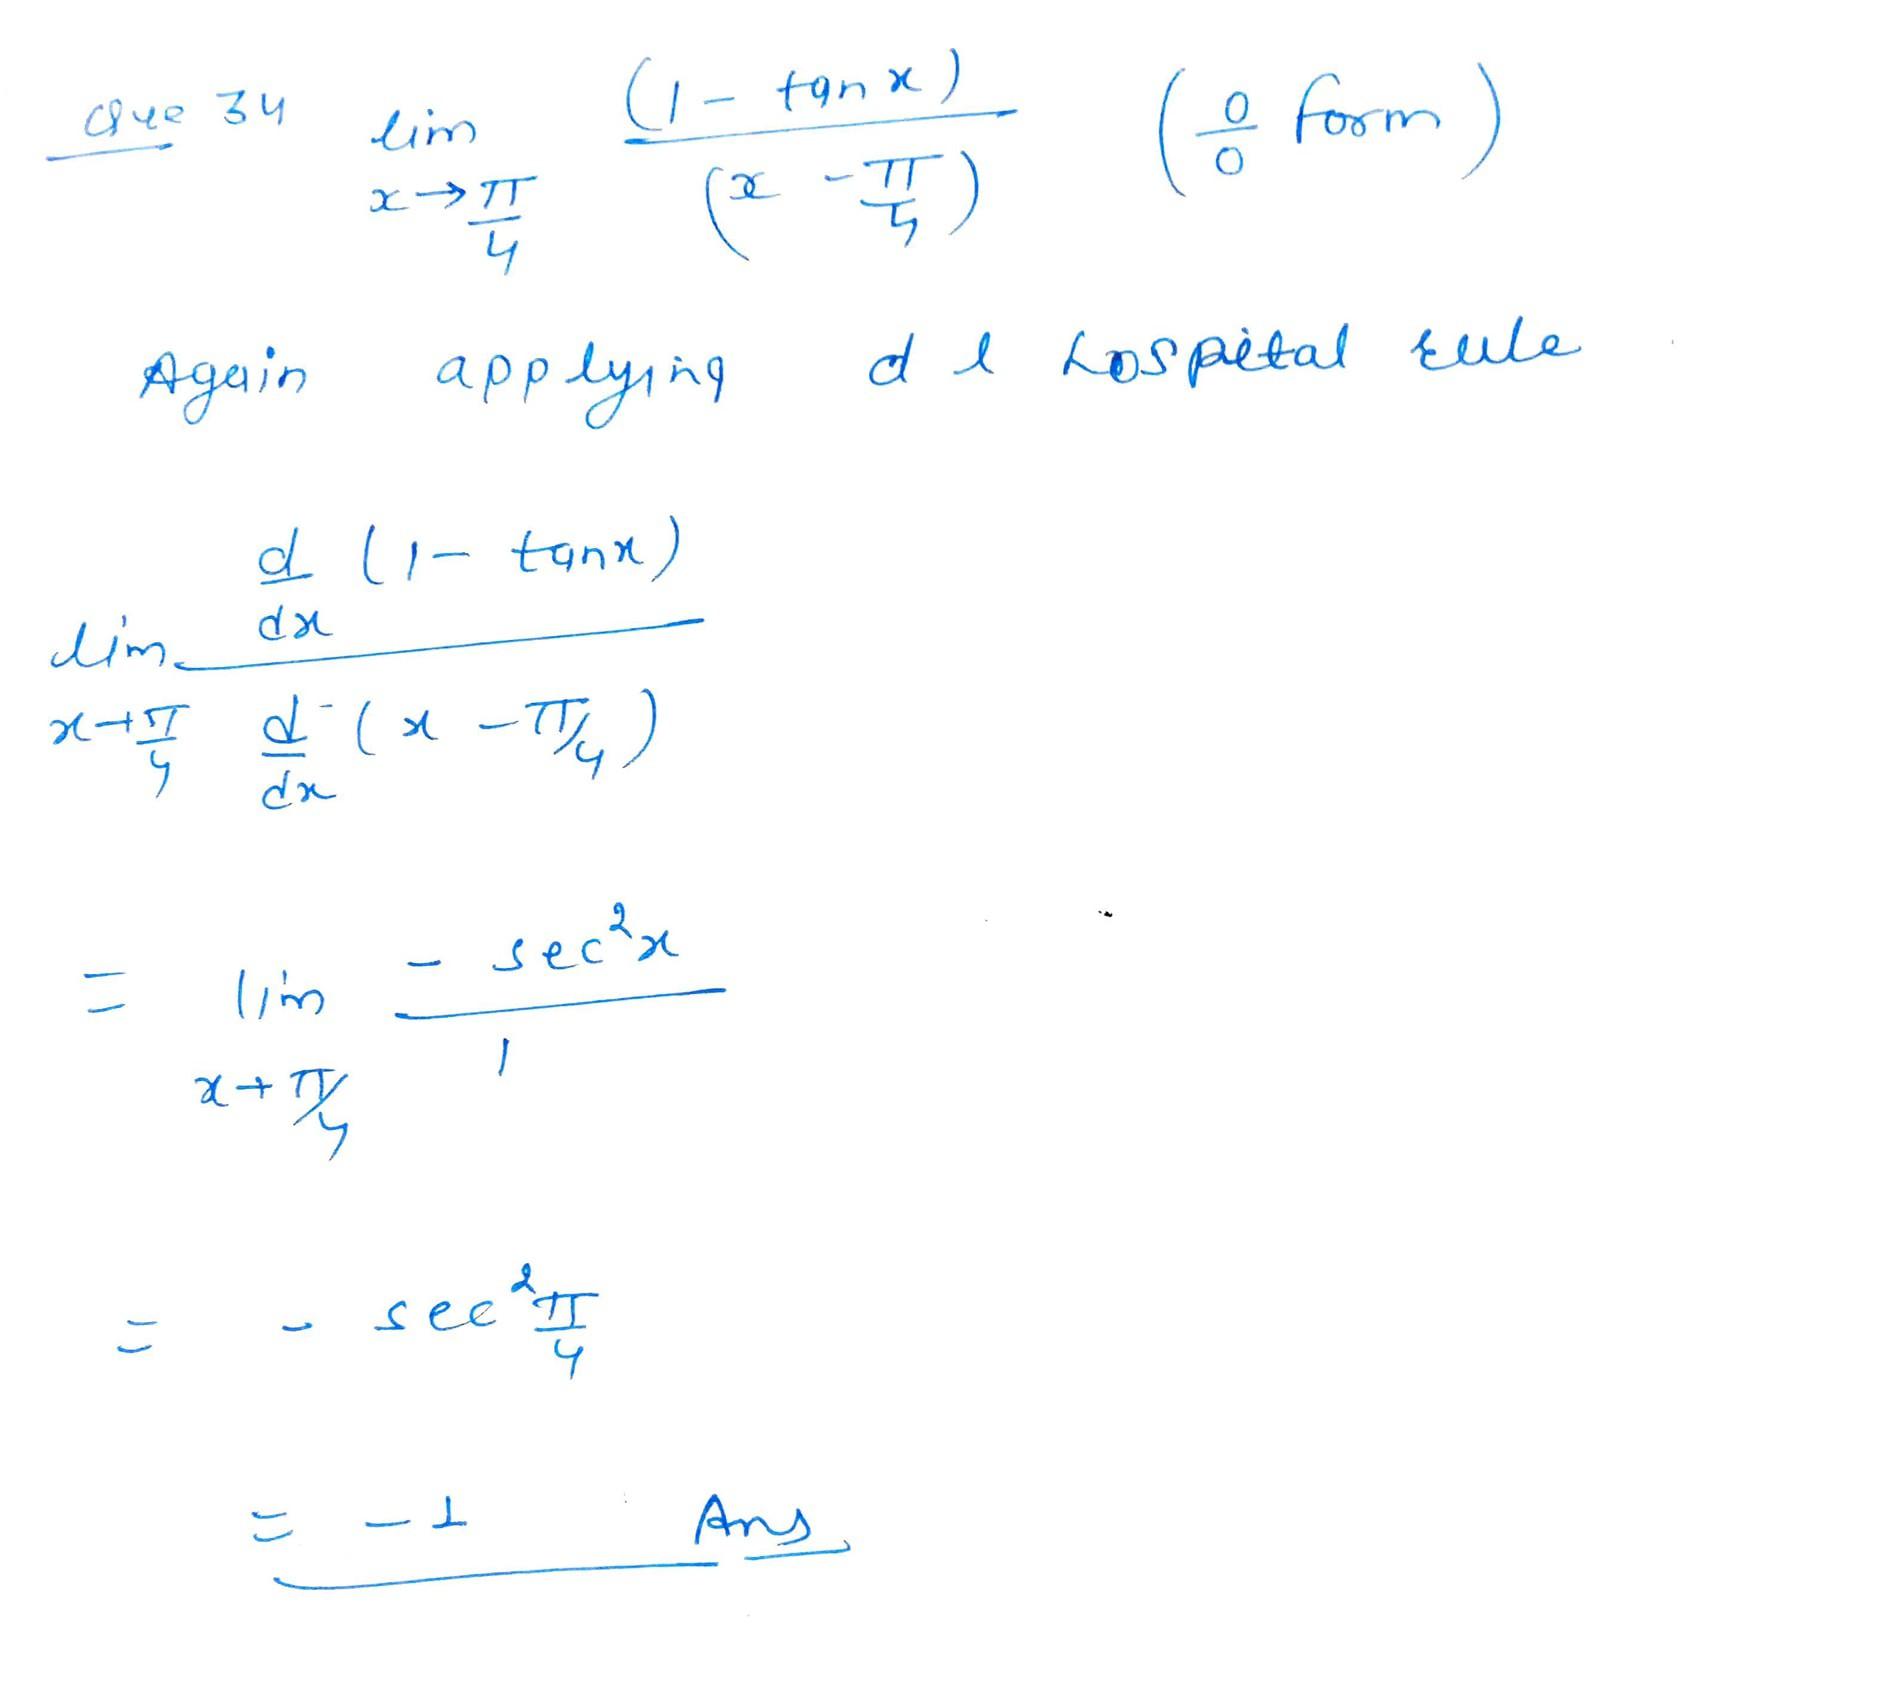 Que 34 lim x→π/4 (1 - tan x) / (x - π/4) (0/0 form)
Again applying d l hospital rule
lim x→π/4 d/dx (1 - tan x) / d/dx (x - π/4)
= lim x→π/4 - sec²x / 1
= - sec² π/4
= -1 Ans